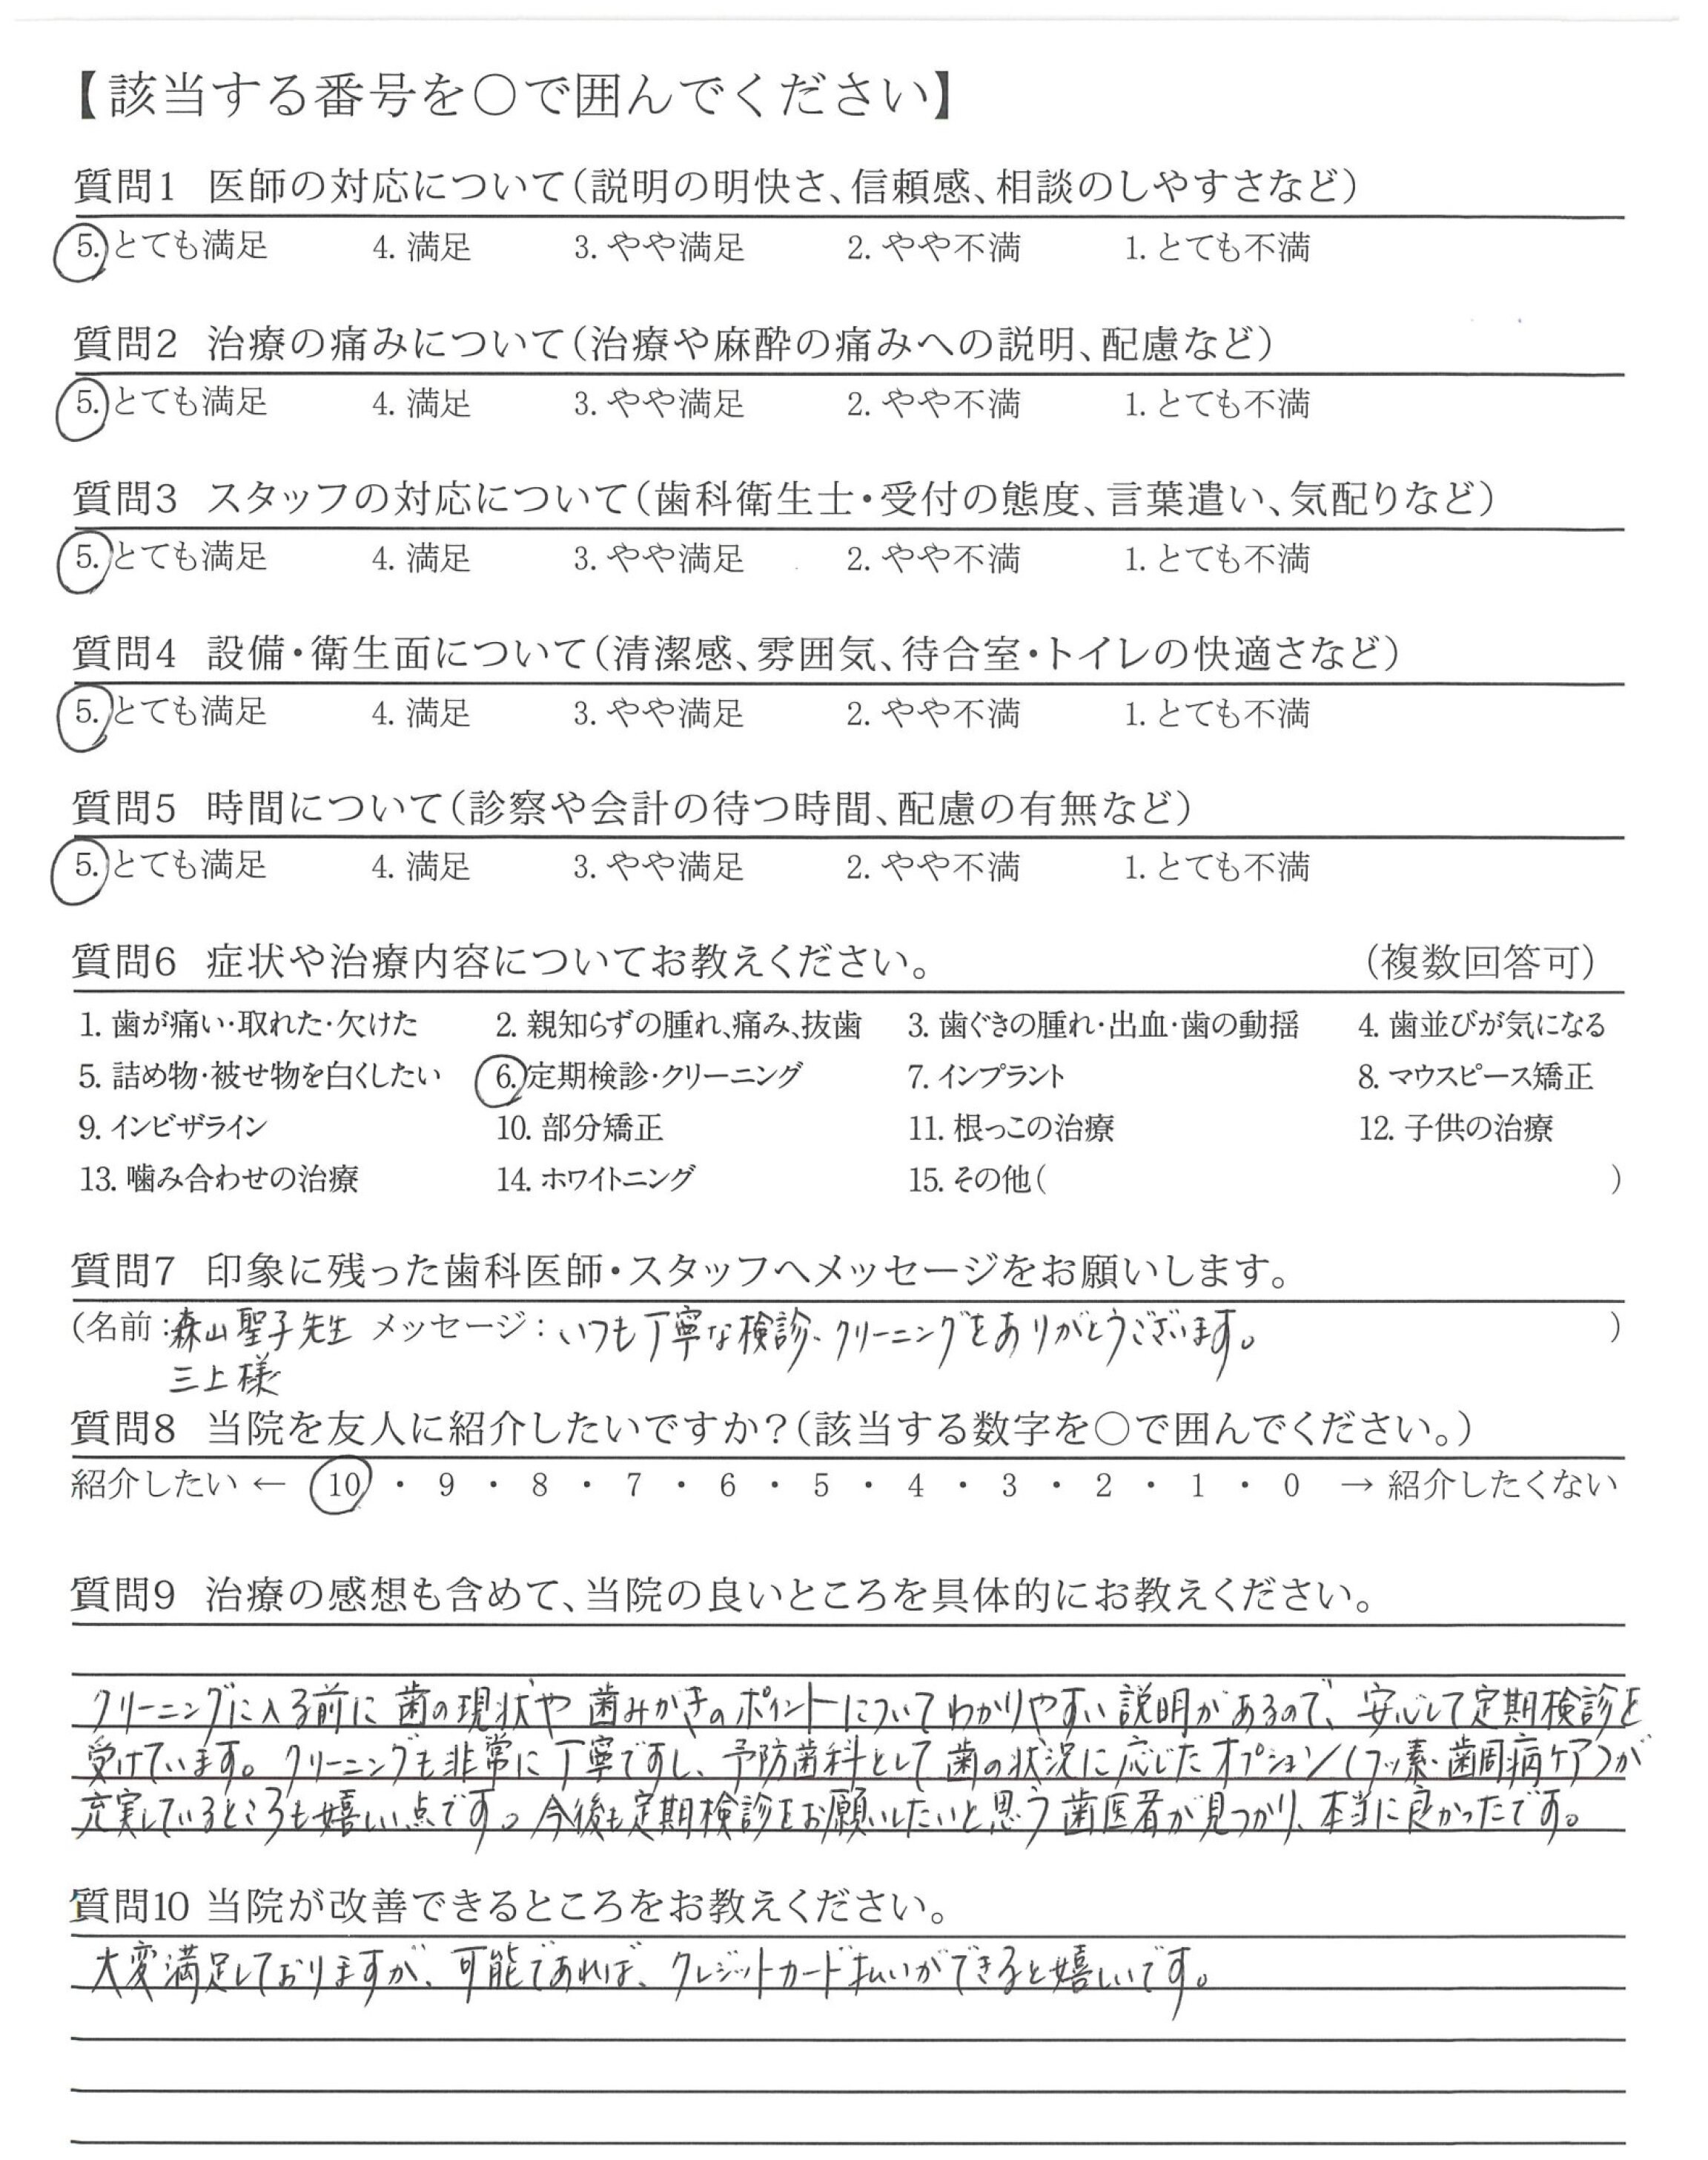 【該当する番号を○で囲んでください】
質問1 医師の対応について(説明の明快さ、信頼感、相談のしやすさなど)
5. とても満足 4. 満足 3. やや満足 2. やや不満 1. とても不満
質問2 治療の痛みについて(治療や麻酔の痛みへの説明、配慮など)
5. とても満足 4. 満足 3. やや満足 2. やや不満 1. とても不満
質問3 スタッフの対応について(歯科衛生士・受付の態度、言葉遣い、気配りなど)
5. とても満足 4. 満足 3. やや満足 2. やや不満 1. とても不満
質問4 設備・衛生面について(清潔感、雰囲気、待合室・トイレの快適さなど)
5. とても満足 4. 満足 3. やや満足 2. やや不満 1. とても不満
質問5 時間について(診察や会計の待つ時間、配慮の有無など)
5. とても満足 4. 満足 3. やや満足 2. やや不満 1. とても不満
質問6 症状や治療内容についてお教えください。 (複数回答可)
1. 歯が痛い・取れた・欠けた 2. 親知らずの腫れ、痛み、抜歯 3. 歯ぐきの腫れ・出血・歯の動揺 4. 歯並びが気になる
5. 詰め物・被せ物を白くしたい 6. 定期検診・クリーニング 7. インプラント 8. マウスピース矯正
9. インビザライン 10. 部分矯正 11. 根っこの治療 12. 子供の治療
13. 噛み合わせの治療 14. ホワイトニング 15. その他( )
質問7 印象に残った歯科医師・スタッフへメッセージをお願いします。
(名前:森山聖子先生 メッセージ:いつも丁寧な検診、クリーニングをありがとうございます。 )
三上様
質問8 当院を友人に紹介したいですか?(該当する数字を○で囲んでください。)
紹介したい ← 10 ・ 9 ・ 8 ・ 7 ・ 6 ・ 5 ・ 4 ・ 3 ・ 2 ・ 1 ・ 0 → 紹介したくない
質問9 治療の感想も含めて、当院の良いところを具体的にお教えください。
クリーニングに入る前に歯の現状や歯みがきのポイントについてわかりやすい説明があるので、安心して定期検診を
受けています。クリーニングも非常に丁寧ですし、予防歯科として歯の状況に応じたオプション(フッ素・歯周病ケア)が
充実しているところも嬉しい点です。今後も定期検診をお願いしたいと思う歯医者が見つかり、本当に良かったです。
質問10 当院が改善できるところをお教えください。
大変満足しておりますが、可能であれば、クレジットカード払いができると嬉しいです。